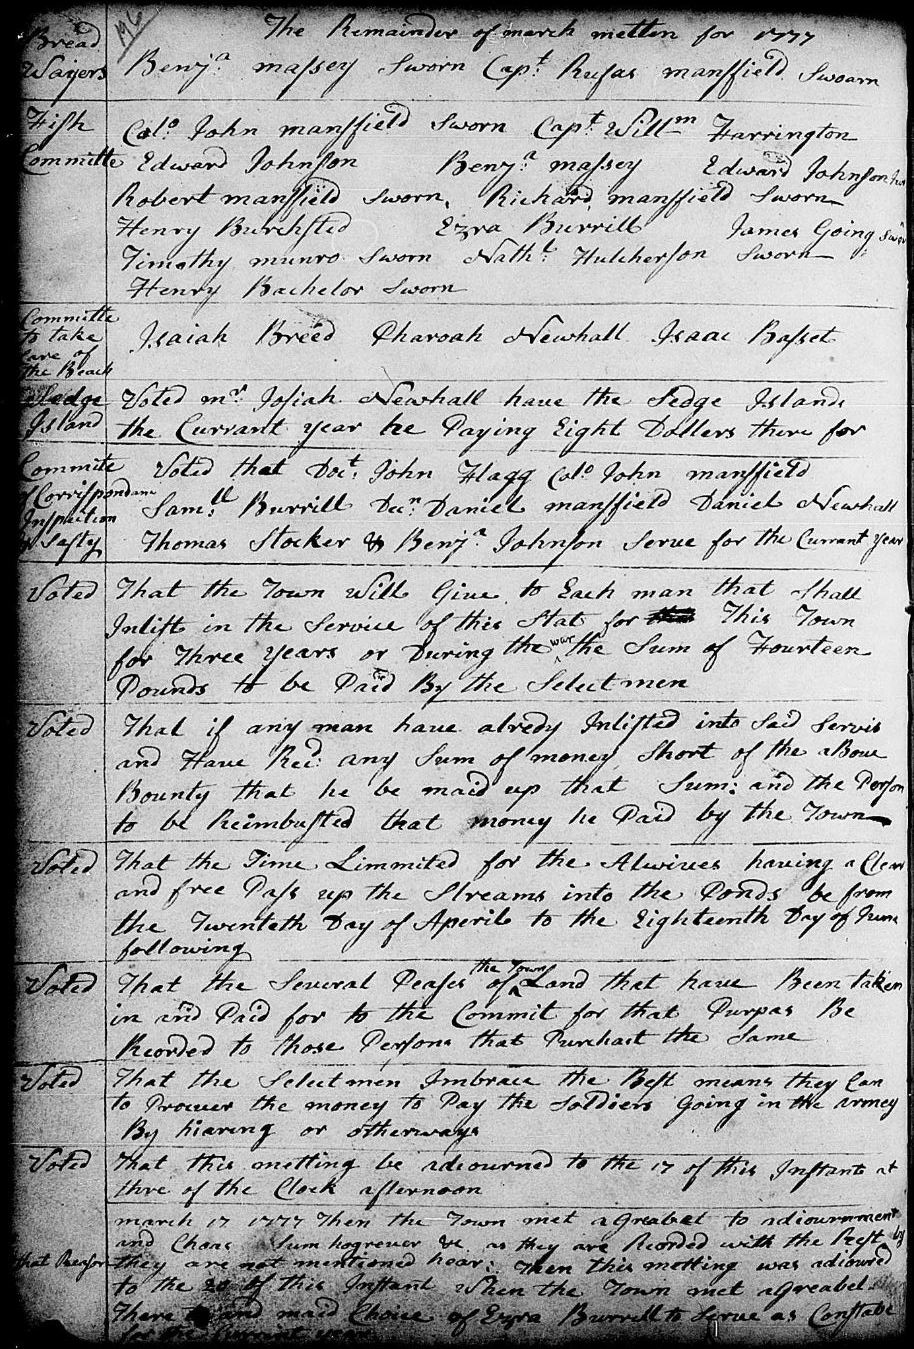 196
The Remainder of march metten for 1777
Bread
Waiyers
Benj.a massey Sworn Capt. Rufas mansfield Swoarn
Fish
Committe
Col.o John mansfield Sworn Capt. Willm Farrington
Edward Johnson Benj.a massey Edward Johnson
Robert mansfield Sworn, Richard mansfield Sworn
Henry Burchsted Ezra Burrill James Going Sworn
Timothy munro Sworn Nath.l Hutcherson Sworn
Henry Bachelor Sworn
Committe
to take
Care of
the Beach
Isaiah Breed Pharoah Newhall Isaac Basset
Sedge
Island
Voted mr. Josiah Newhall have the Sedge Island
the Currant year he Paying Eight Dollers there for
Commite
of Corrispondanc
Inspection
& Safty
Voted that Doct. John Flagg Col.o John mansfield
Sam.ll Burrill Den. Daniel mansfield Daniel Newhall
Thomas Stocker & Benj.a Johnson Serve for the Currant year
Voted
That the Town Will Give to Each man that Shall
Inlist in the Service of this Stat for This Town
for Three years or During the war the Sum of Fourteen
Pounds to be Paid By the Selectmen
Voted
That if any man have alredy Inlisted into Said Servis
and Have Rec.d any Sum of money Short of the aBove
Bounty that he be maid up that Sum: and the Person
to be Reimbusted that money he Paid by the Town
Voted
That the Time Limmited for the Alwives having a Clear
and free Pass up the Streams into the Ponds be from
the Twenteth Day of Aperil to the Eighteenth Day of June
following
Voted
That the Several Peases of the Town Land that have Been taken
in and Paid for to the Commit for that Purpas Be
Recorded to those Persons that Purchast the Same
Voted
That the Selectmen Imbrace the Best means they Can
to Procuer the money to Pay the Soldiers Going in the armey
By hiaring or otherways
Voted
that this metting be adiourned to the 17 of this Instant at
thre of the Clock afternoon
march 17 1777 Then the Town met aGreabel to adiournment
and Choas Sum hogrever &c. as they are Recorded with the Rest by
that Reason
they are not mentioned hear: Then this metting was adiourd
to the 20 of this Instant When the Town met aGreabel
There and maid Choice of Ezra Burrill to Serve as Constabe
for the Currant year